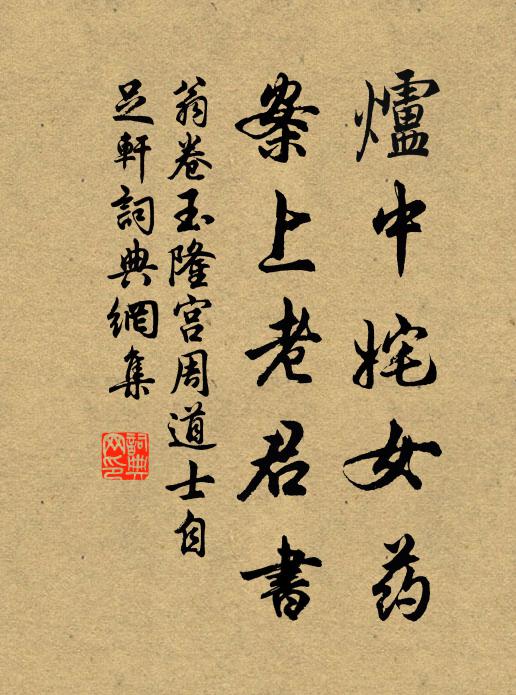 爐中姹女药
案上老君書
翁卷玉隆宫周道士自
足軒詞典網集
詞典网印